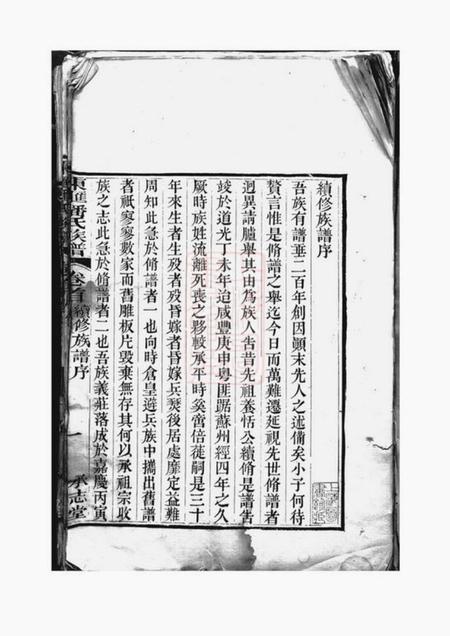 續修族譜序
吾族有譜垂二百年創因顛末先人之述備矣小子何待
贅言惟是脩譜之舉迄今日而萬難遷延視先世脩譜者
迥異請臚舉其由為族人告昔先祖養恬公續脩是譜告
竣於道光丁未年迨咸豐庚申粵匪踞蘇州經四年之久
厥時族姓流離死喪之夥較承平時奚啻倍蓰嗣是三十
年來生者生歿者歿昏嫁者昏嫁兵燹後居處靡定益難
周知此急於脩譜者一也向時倉皇避兵族中攜出舊譜
者祇寥寥數家而舊雕板片毀棄無存其何以承祖宗收
族之志此急於脩譜者二也吾族義莊落成於嘉慶丙寅
東匯潘氏族譜
卷首 續修族譜序
一
承志堂